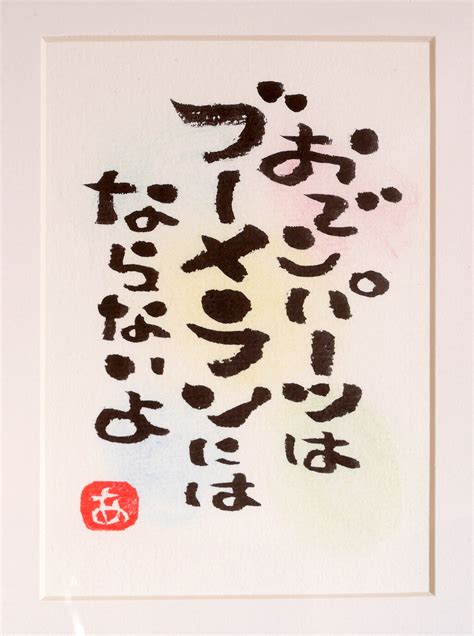 おでンパーツは
ブーメランには
ならないよ
あ